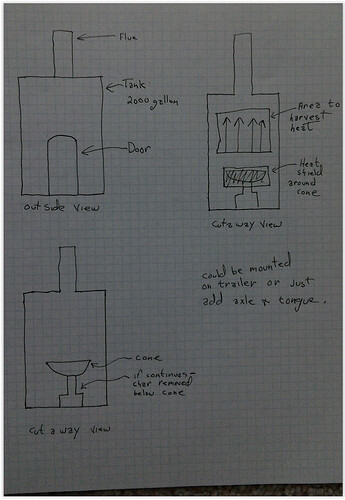 Flue
Tank
2000 gallon
Door
Outside View
Area to
harvest
heat
Heat
shield
around
cone
Cut a way View
could be mounted
on trailer or just
add axle & tongue.
cone
if continues-
char removed
below cone
Cut a way View